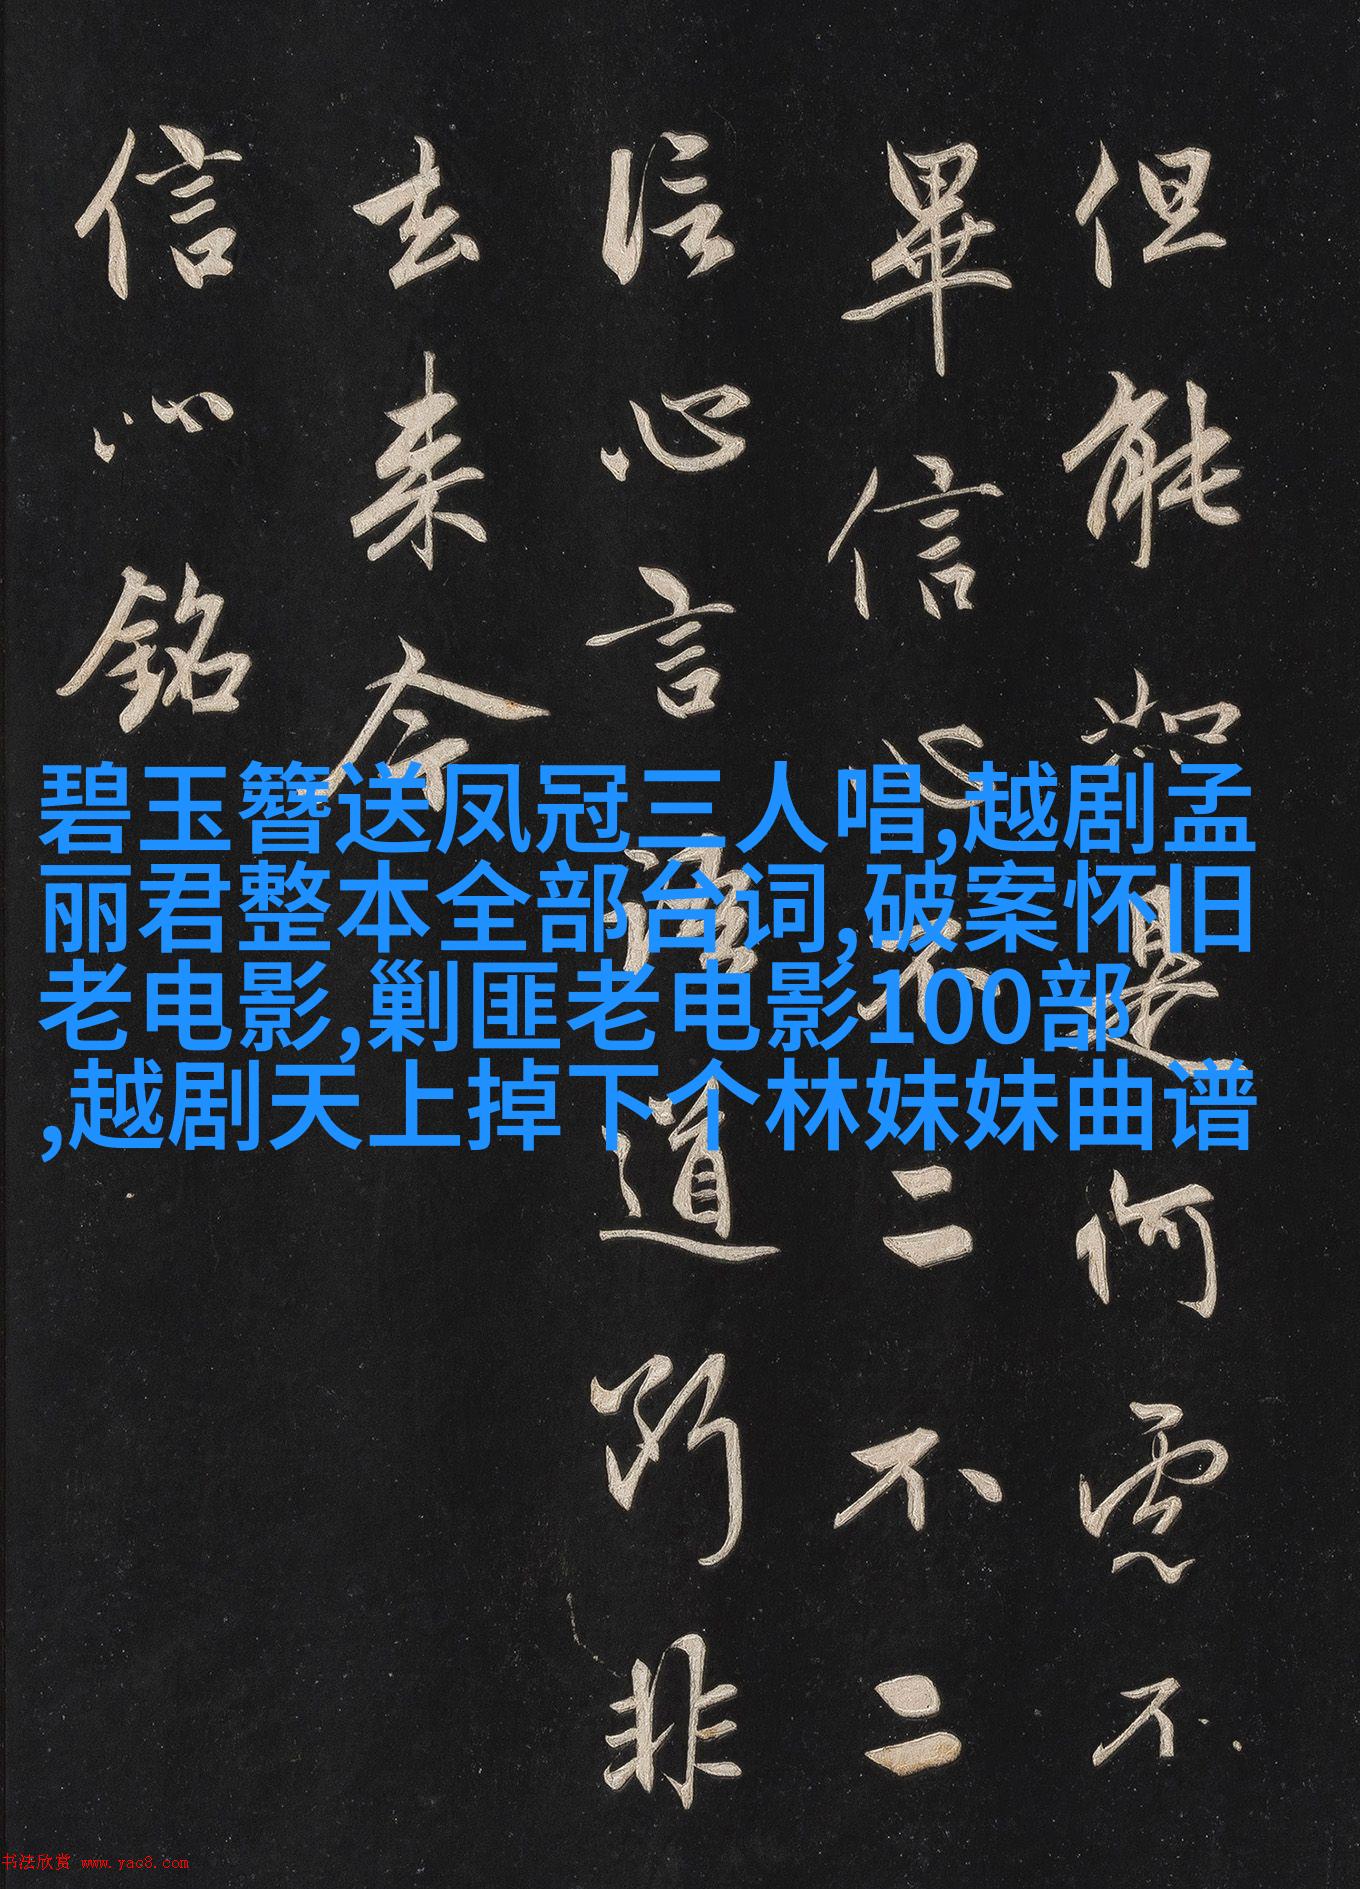 但能如是何慮不
畢信心不二不二
信心言語道断非
去来今
信心銘
碧玉簪送凤冠三人唱,越剧孟
丽君整本全部台词,破案怀旧
老电影,剿匪老电影100部
,越剧天上掉下个林妹妹曲谱
书法欣赏 www.yac8.com